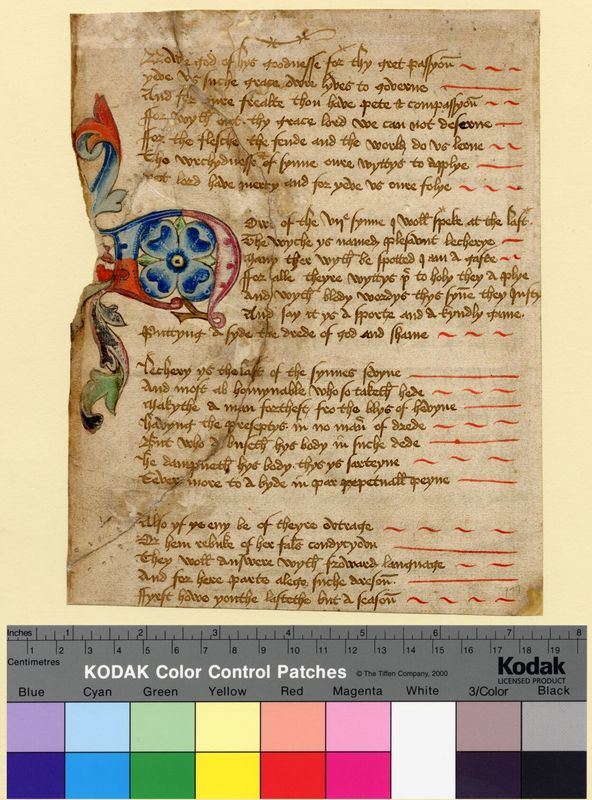 Nowe god of hys goodnesse for thy gret passyoun
yeve us suche grace owre lyves to governe
And for oure frealte thou have pete & compassyoun
ffor wyth out thy grace lord we can not deserne
ffor the flesche the fende and the world do us lerne
The wrechydnesse of synne oure wyttys to applye
yet lord have mercy and for yeve us oure folye
Now of the vijᵉ synne I woll speke at the last
The wyche ys named plesaunt lecherye
Many ther wyth be spotted I am a gaste
ffor alle theyre wyttys þᵗ to holy they a plye
And wyth blody wordys thys synne they Justy
And say it ys a sporte and a kyndly game
Puttyng a syde the drede of god and shame
lechery ys the last of the synnes sevyne
And most ab homynable who so taketh hede
Makythe a man forthest fro the blys of hevyne
havyng the preseptys in no maner of drede
But who a buseth hys body in suche dede
he dampneth hys body thys ys sarteyne
Ever more to a byde in perpetuall peyne
Also yf ye eny be of theyre outrage
Or hem rebuke of her fals condycyoun
They woll answere wyth froward language
And for here parte alege suche a resoun
ffyrst howe youthe lastethe but a seasoun
Inches 1 2 3 4 5 6 7 8
Centimetres 1 2 3 4 5 6 7 8 9 10 11 12 13 14 15 16 17 18 19
KODAK Color Control Patches © The Tiffen Company, 2000 Kodak
LICENSED PRODUCT
Blue Cyan Green Yellow Red Magenta White 3/Color Black